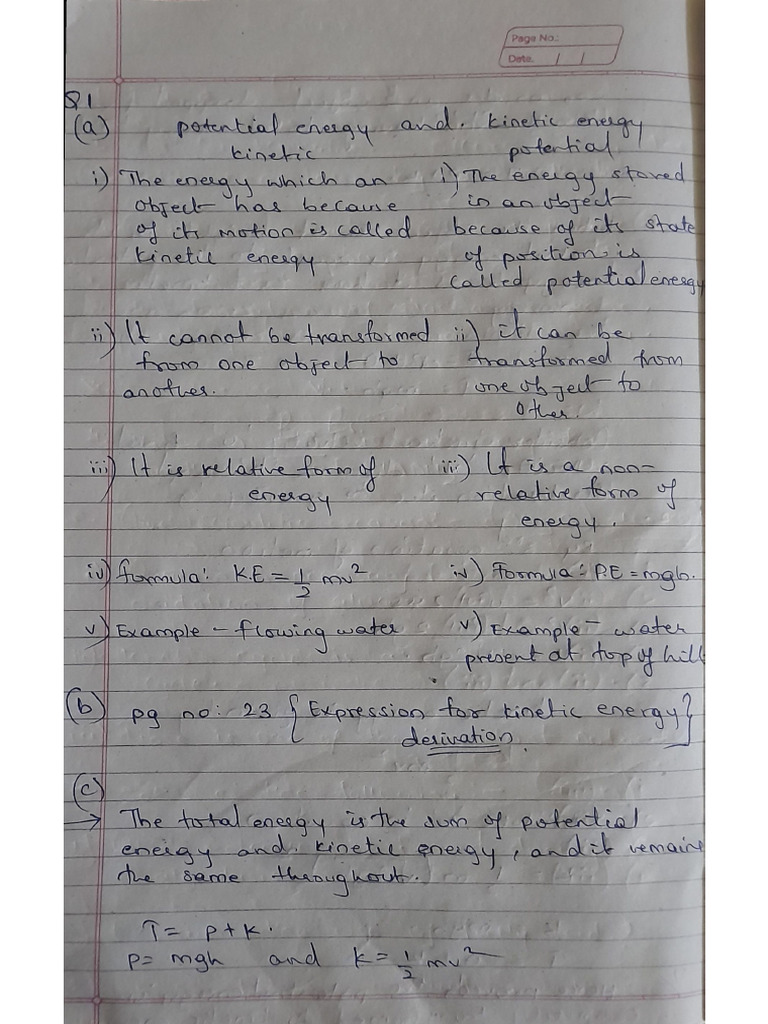 Page No.:
Date. / /
Q1
(a) potential energy and. kinetic energy
kinetic
i) The energy which an
object has because
of its motion is called
kinetic energy
potential
i) The energy stored
in an object
because of its state
of position is
called potential energy
ii) It cannot be transformed
from one object to
another.
ii) it can be
transformed from
one object to
other.
iii) It is relative form of
energy
iii) It is a non-
relative form of
energy.
iv) formula: K.E = 1/2 mv²
iv) Formula: P.E = mgh.
v) Example - flowing water
v) Example - water
present at top of hill
(b) pg no: 23 { Expression for kinetic energy }
derivation.
(c)
→ The total energy is the sum of potential
energy and. kinetic energy, and it remains
the same throughout.
T = p + k.
p = mgh and k = 1/2 mv²